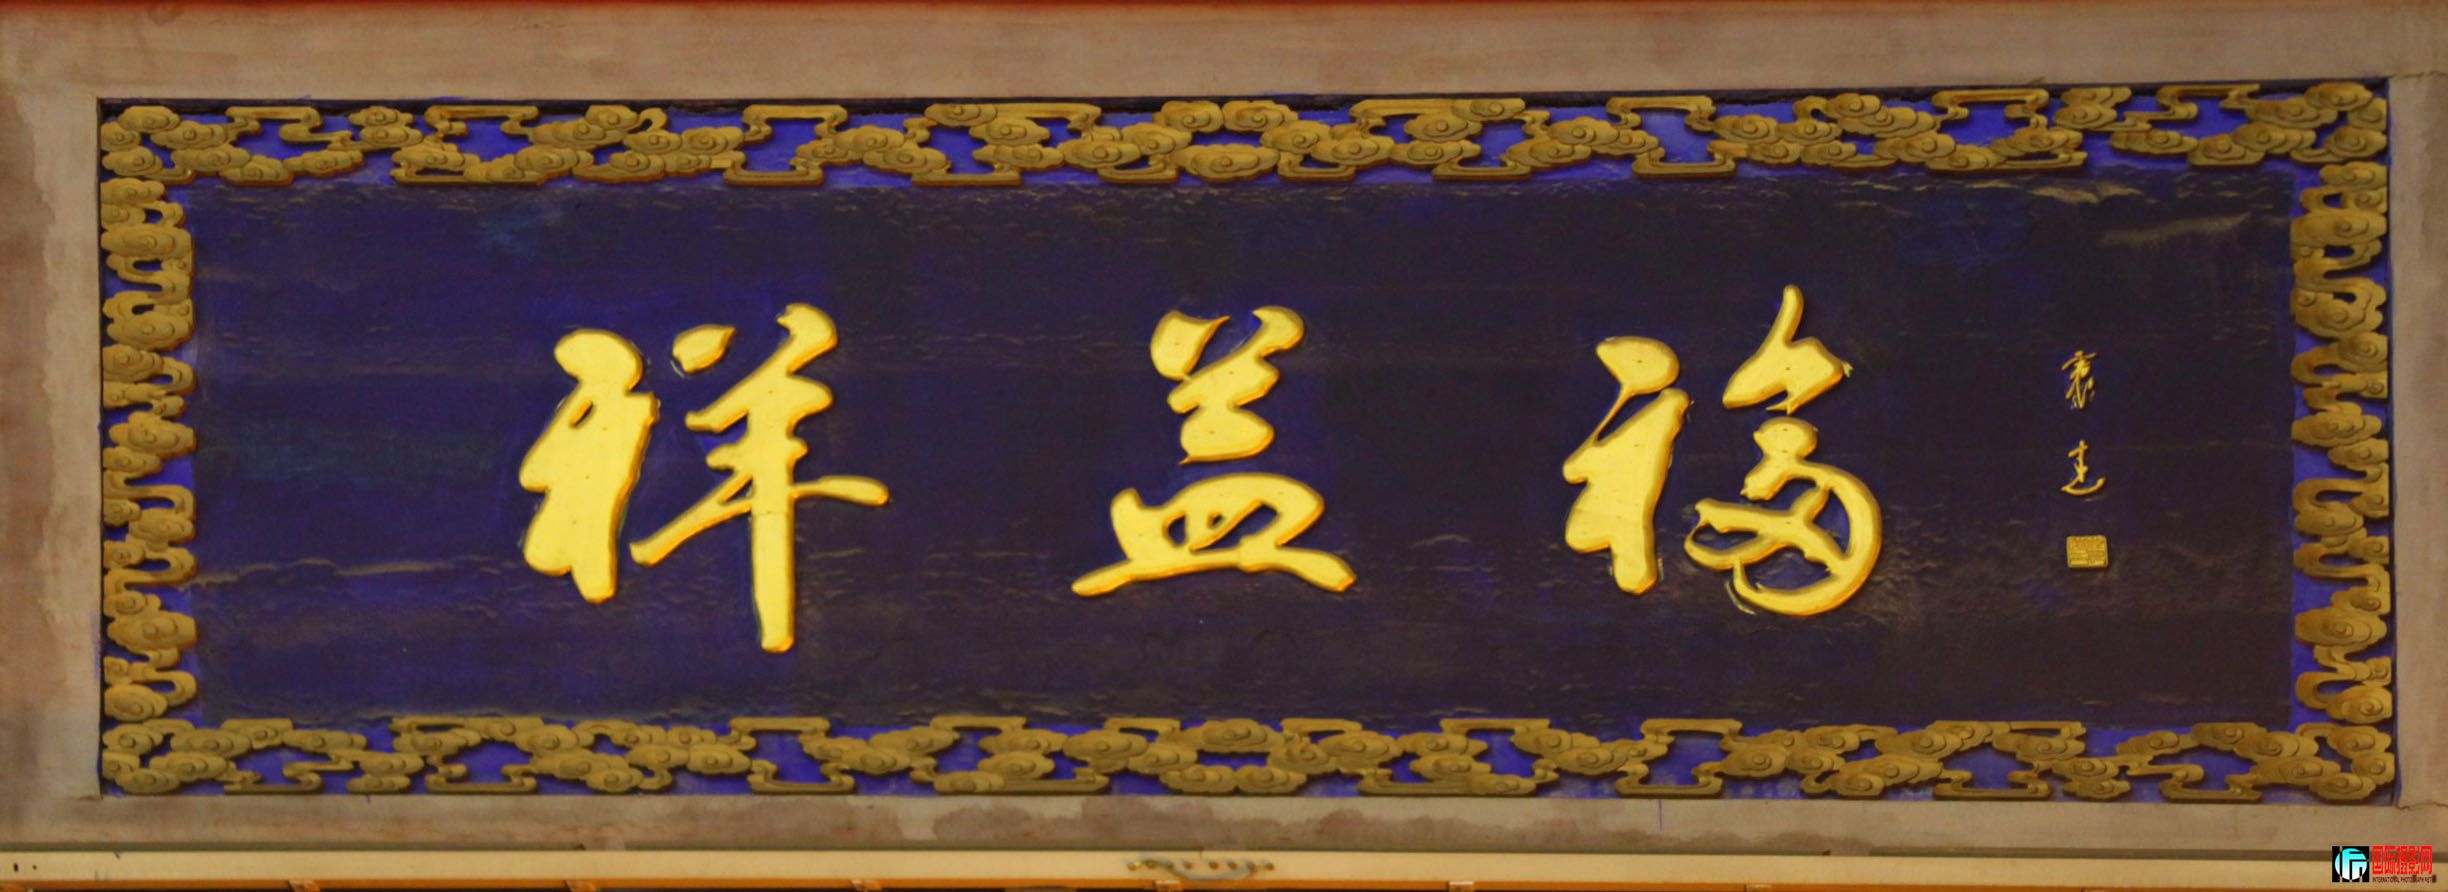 福益祥
國际攝影网
INTERNATIONAL PHOTOGRAPHY.NET